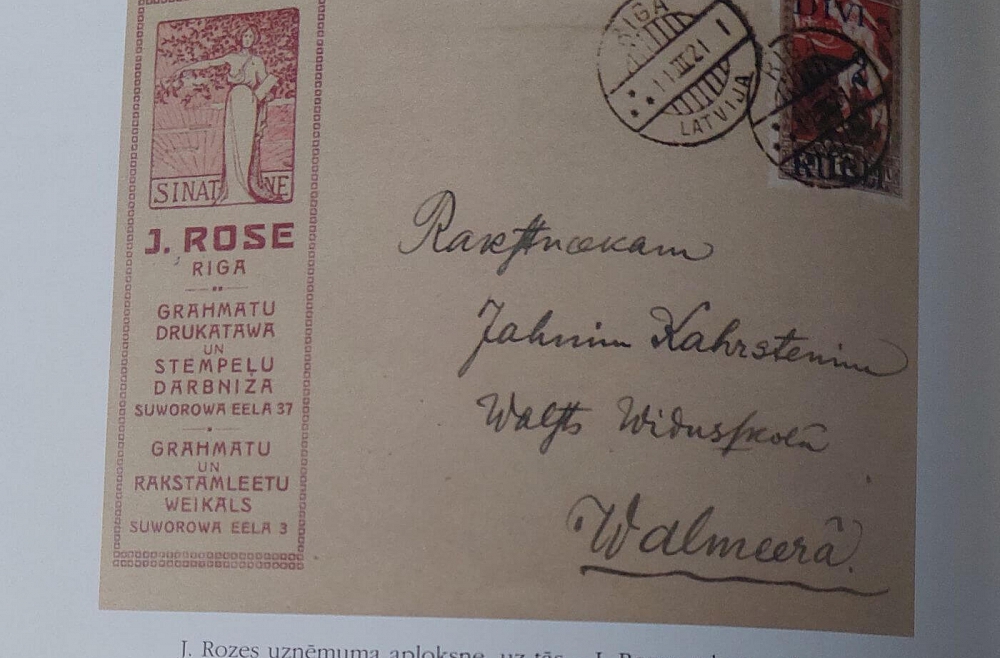 SINAT NE
J. ROSE
RIGA
GRAHMATU
DRUKATAWA
UN
STEMPEĻU
DARBNIZA
SUWOROWA EELA 37
GRAHMATU
UN
RAKSTAMLEETU
WEIKALS
SUWOROWA EELA 3
RIGA
1.III.21
LATVIJA
DIVI
RUBĻI
Rakstneekam
Jahnim Kahrstenim
Walsts Widusskolā
Walmeerā.
J. Rozes uzņēmuma aploksne, uz tās